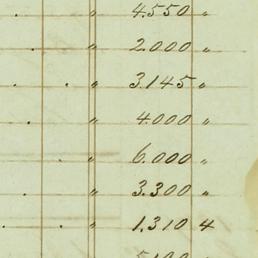 " 4.550 "
" 2.000 "
" 3.145 "
" 4.000 "
" 6.000 "
" 3.300 "
" 1.310 4